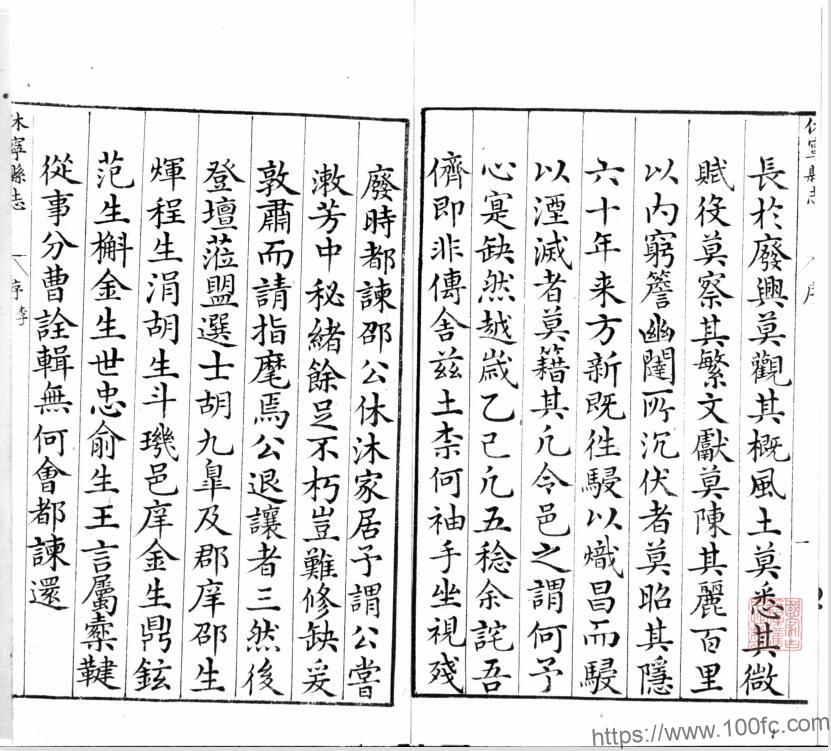 長於廢興莫觀其概風土莫悉其微
賦役莫察其繁文獻莫陳其麗百里
以內窮簷幽闥所沉伏者莫昭其隱
六十年来方新既徃駸以熾昌而駸
以湮滅者莫籍其凢今邑之謂何予
心寔缺然越歲乙巳凢五稔余詫吾
儕即非傳舍茲土柰何袖手坐視殘
廢時都諫邵公休沐家居予謂公嘗
漱芳中秘緒餘足不朽豈難修缺爰
敦肅而請指麾焉公退讓者三然後
登壇蒞盟選士胡九臯及郡庠邵生
煇程生涓胡生斗璣邑庠金生鼎鉉
范生檞金生世忠俞生王言屬櫜鞬
從事分曹詮輯無何會都諫還
休寧縣志
序 李
休寧縣志
序
https://www.100fc.com